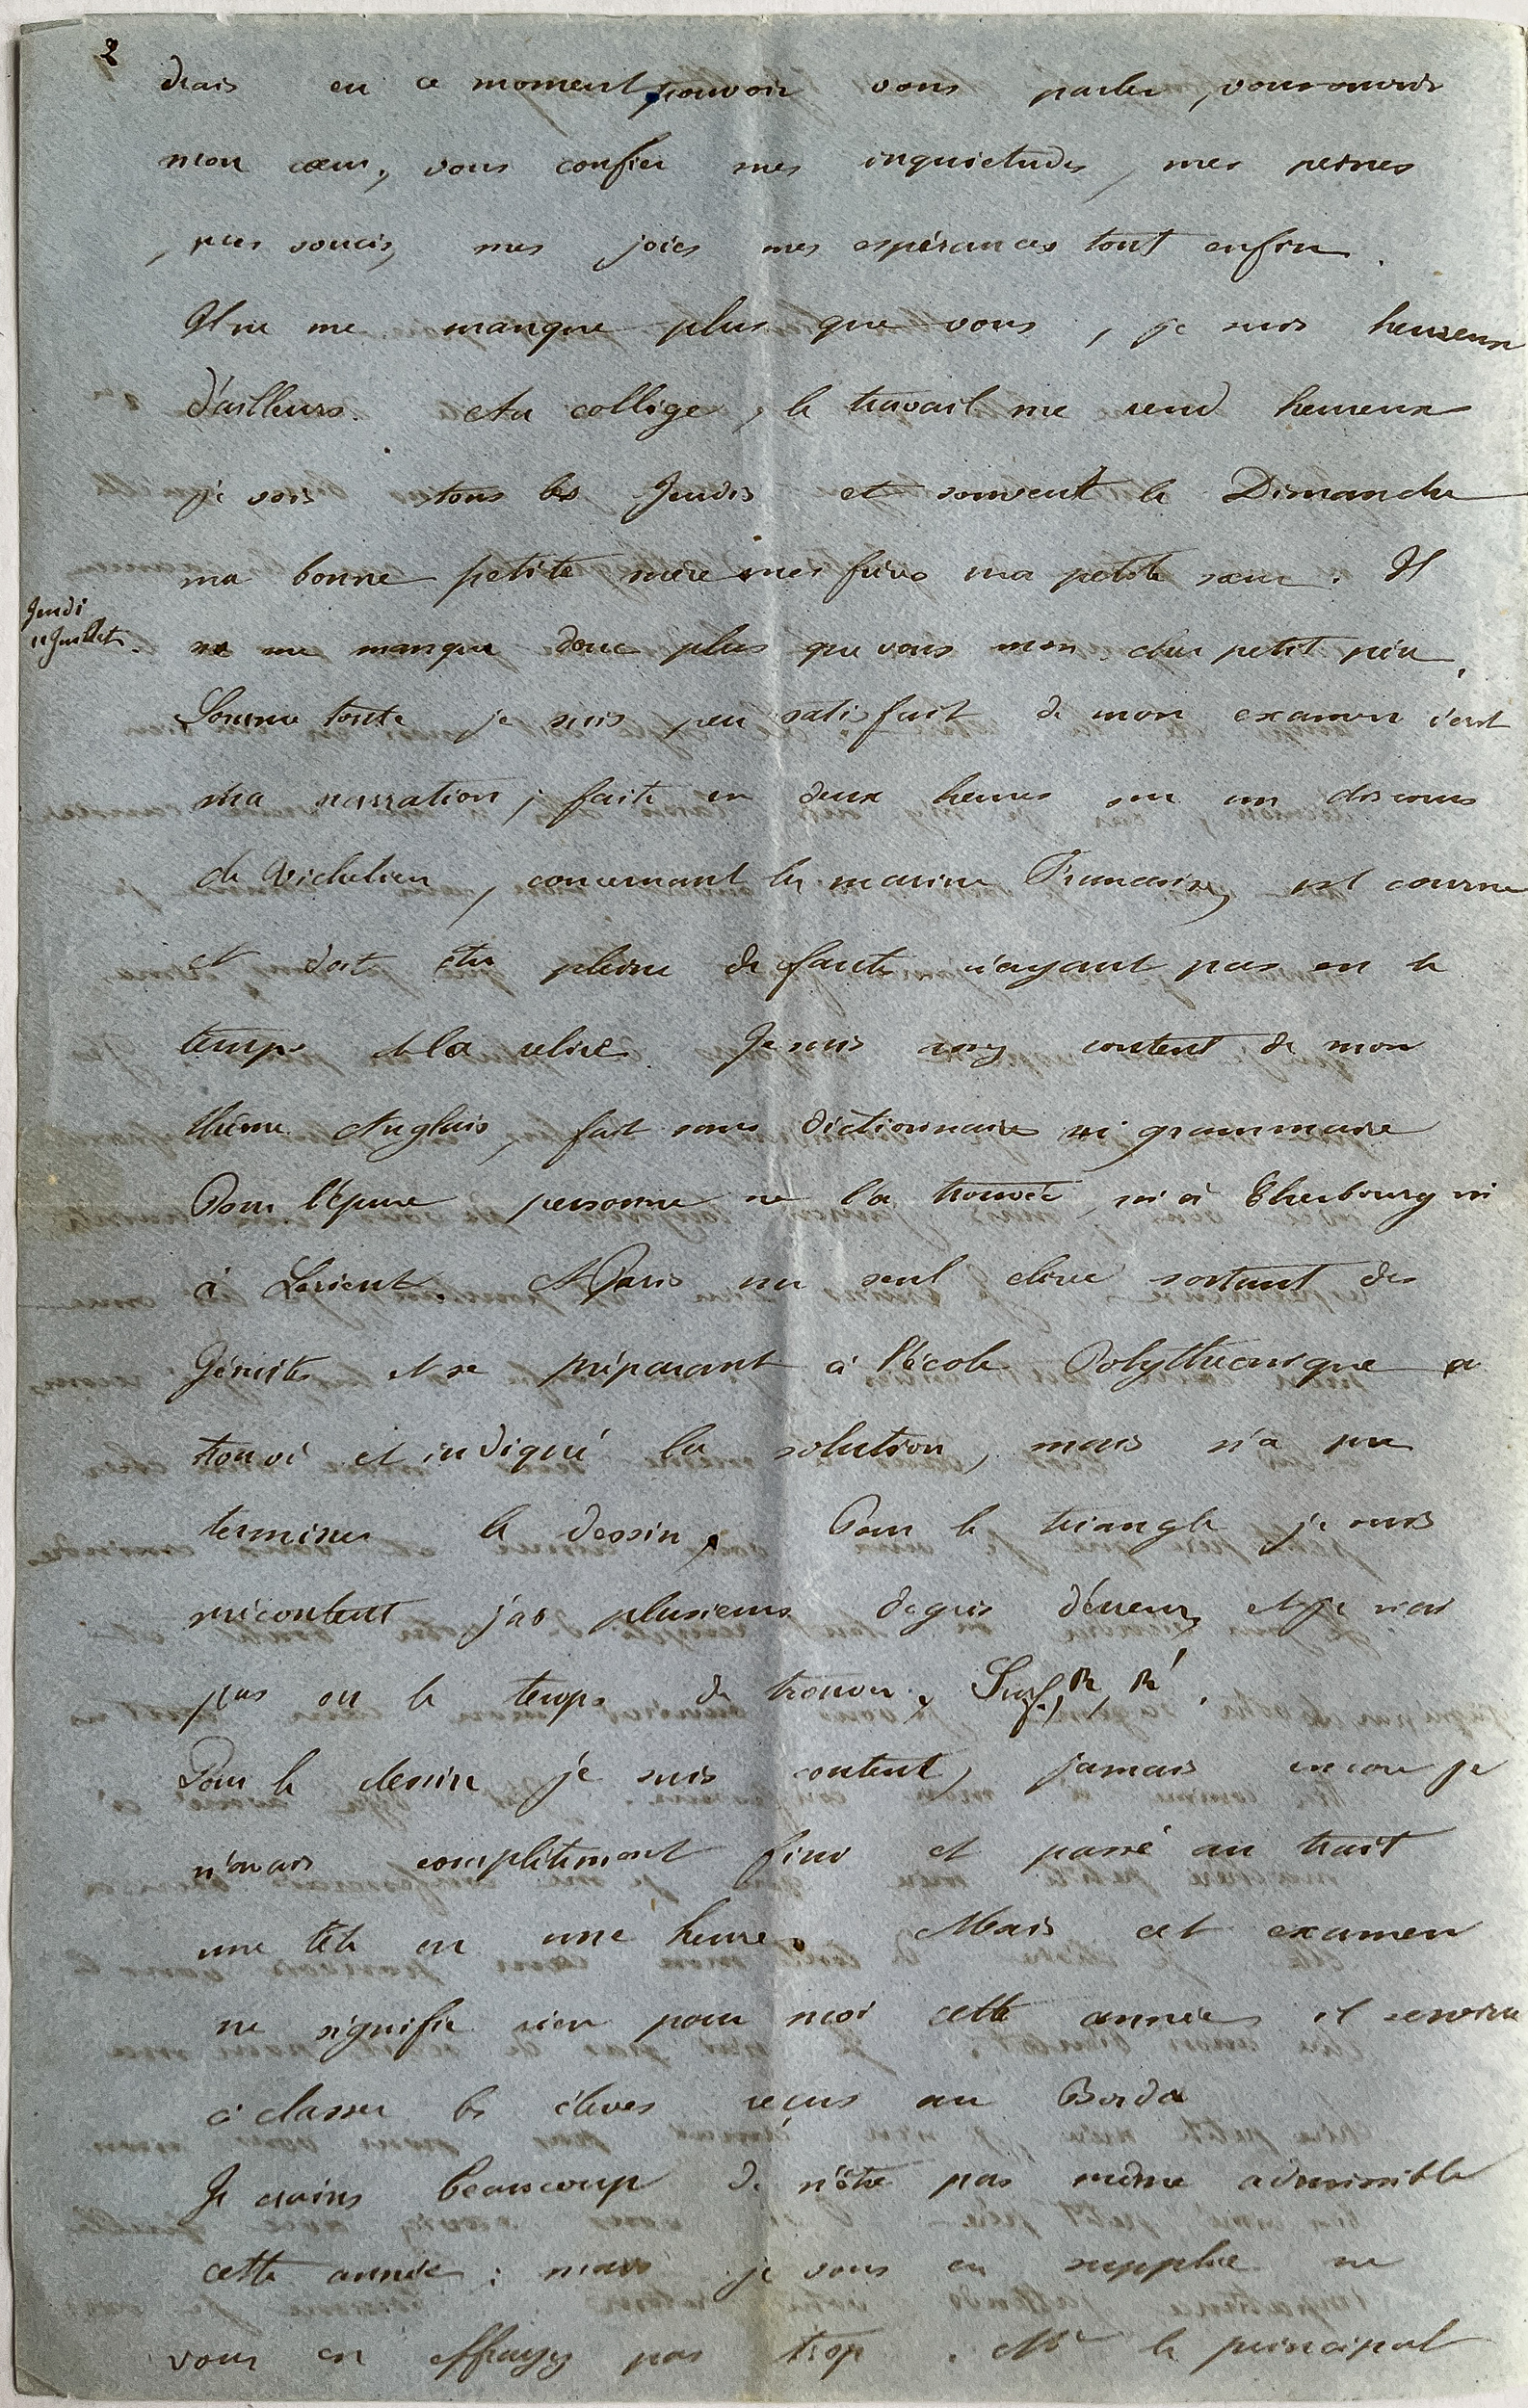 2
drais en ce moment pouvoir vous parler, vous ouvrir
mon cœur, vous confier mes inquietudes, mes peines
, mes soucis, mes joies mes espérances tout enfin.
Il ne me manque plus que vous, je suis heureux
d'ailleurs. Au collège, le travail me rend heureux
je vois tous les Jeudis et souvent le Dimanche
ma bonne petite mère mes frères ma petite sœur. Il
Jeudi
11 Juillet.
ne me manque donc plus que vous mon cher petit père.
Somme toute je suis peu satisfait de mon examen écrit
ma narration, faite en deux heures sur un discours
de Richelieu, concernant la marine Française, est courte
et doit être pleine de faute n'ayant pas eu le
temps de la relire. Je suis assez content de mon
thême Anglais, fait sans dictionnaire ni grammaire
Pour l'épure personne ne l'a trouvée, ni à Cherbourg ni
à Lorient. A Paris un seul élève sortant des
Jésuites et se préparant à l'école Polythecnique a
trouvé et indiqué la solution, mais n'a pu
terminer le dessin. Pour le triangle je suis
mécontent j'ai plusieurs degrés d'érreur, et je n'ai
pas eu le temps de trouver, Surf, R, R'.
Pour le dessin je suis content, jamais encore je
n'avais complétement fini et passé au trait
une tête en une heure. Mais cet examen
ne signifie rien pour moi cette année, il servira
à classer les élèves reçus au Borda
Je crains beaucoup de n'être pas même admissible
cette année; mais je vous en supplie ne
vous en effrayez pas trop. Mr le principal